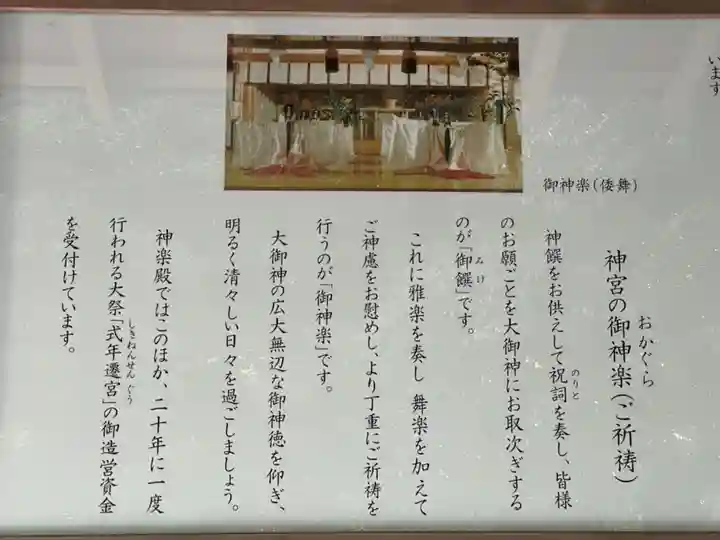 います
御神楽(倭舞)
おかぐら
神宮の御神楽(ご祈祷)
のりと
神饌をお供えして祝詞を奏し、皆様
のお願ごとを大御神にお取次ぎする
みけ
のが「御饌」です。
これに雅楽を奏し 舞楽を加えて
ご神慮をお慰めし、より丁重にご祈祷を
行うのが「御神楽」です。
大御神の広大無辺な御神徳を仰ぎ、
明るく清々しい日々を過ごしましょう。
神楽殿ではこのほか、二十年に一度
しきねんせんぐう
行われる大祭「式年遷宮」の御造営資金
を受付けています。